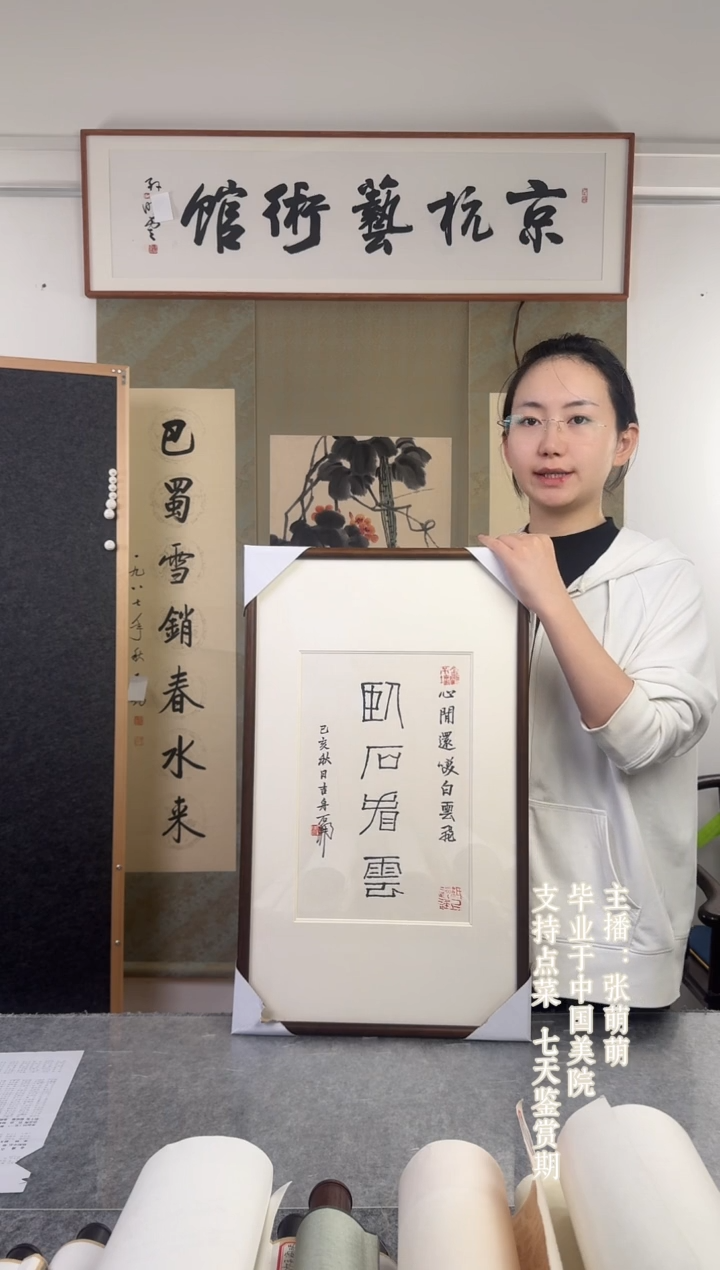 京杭藝術館
巴蜀雪銷春水来
一九八七年秋
心閒還笑白雲飛
臥石看雲
己亥秋日吉舟石開
主播：张萌萌
毕业于中国美院
支持点菜 七天鉴赏期